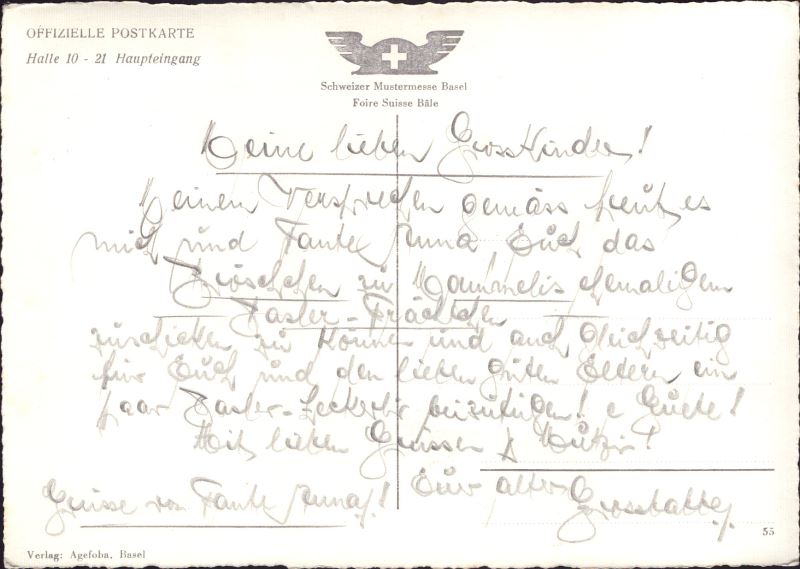 OFFIZIELLE POSTKARTE
Halle 10 - 21 Haupteingang
Schweizer Mustermesse Basel
Foire Suisse Bâle
Meine lieben Grosskinder!
Meinem Versprechen gemäss freut es
mich und Tante Anna Euch das
Bröschchen zu ehemaligem
Basler-Trächtchen
zuschicken zu können und auch gleichzeitig
für Euch und den lieben guten Eltern ein
paar Basler-Leckerli beizufügen! e Guete!
Mit lieben Grüssen &
Euer alter Grosspappe
Grüsse von Tante Anna!
55
Verlag: Agefoba, Basel